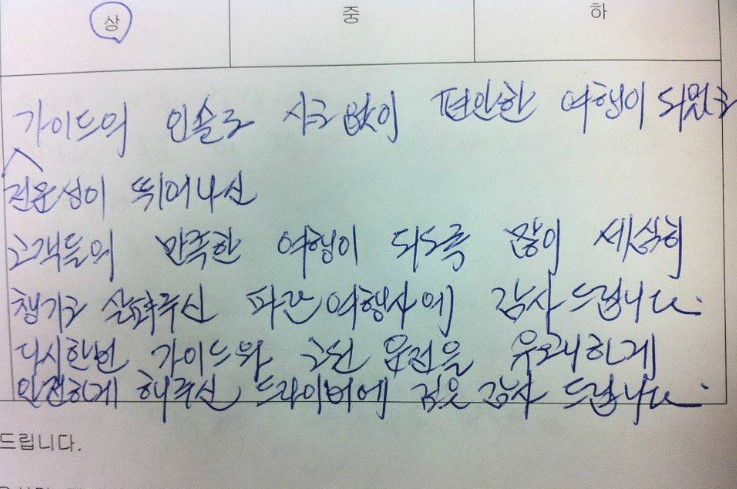 상 중 하
가이드의 인솔로 사고 없이 편안한 여행이 되었고
전문성이 뛰어나신
고객들의 만족한 여행이 되도록 많이 세심히
챙기고 살펴주신 파란여행사에 감사드립니다.
다시한번 가이드와 운전을 유쾌하게
안전하게 해주신 드라이버에 깊은 감사 드립니다.
드립니다.